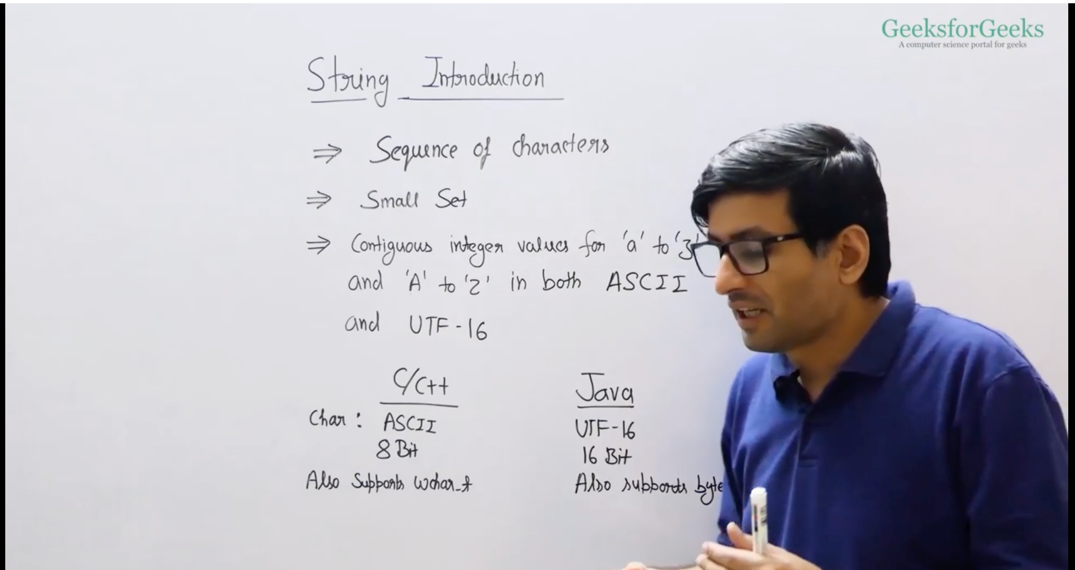 GeeksforGeeks
A computer science portal for geeks
String Introduction
⇒ Sequence of characters
⇒ Small Set
⇒ Contiguous integer values for 'a' to 'z'
and 'A' to 'Z' in both ASCII
and UTF-16
C/C++ Java
Char : ASCII UTF-16
8 Bit 16 Bit
Also Supports wchar_t Also supports byte